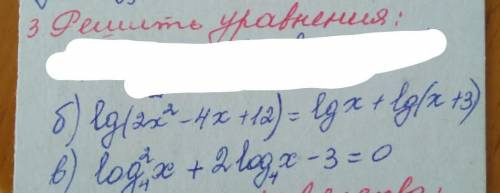 3 Решить уравнения:
б) lg(2x² - 4x + 12) = lg x + lg(x + 3)
в) log₄²x + 2log₄x - 3 = 0